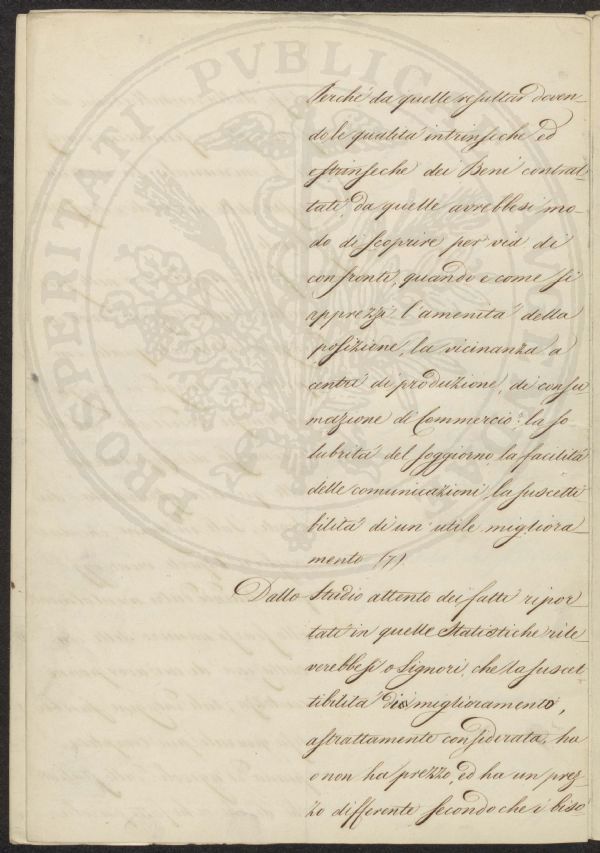 Perché da quelle resultar doven-
do le qualità intrinseche ed
estrinseche dei Beni contrat-
tati, da quelle avrebbesi mo-
do di scoprire per via di
confronti, quando e come si
apprezzi l'amenità della
posizione, la vicinanza a
centri di produzione, di consu-
mazione di Commercio: la sa
lubrità del soggiorno, la facilità
delle comunicazioni, la suscetti
bilità di un utile migliora-
mento (7)
Dallo Studio attento dei fatti ripor-
tati in quelle Statistiche rile
verebbesi o Signori, che la suscet
tibilità di miglioramento,
astrattamente considerata, ha
o non ha prezzo, ed ha un prez-
zo differente secondo che i biso
PROSPERITATI PVBLICAE